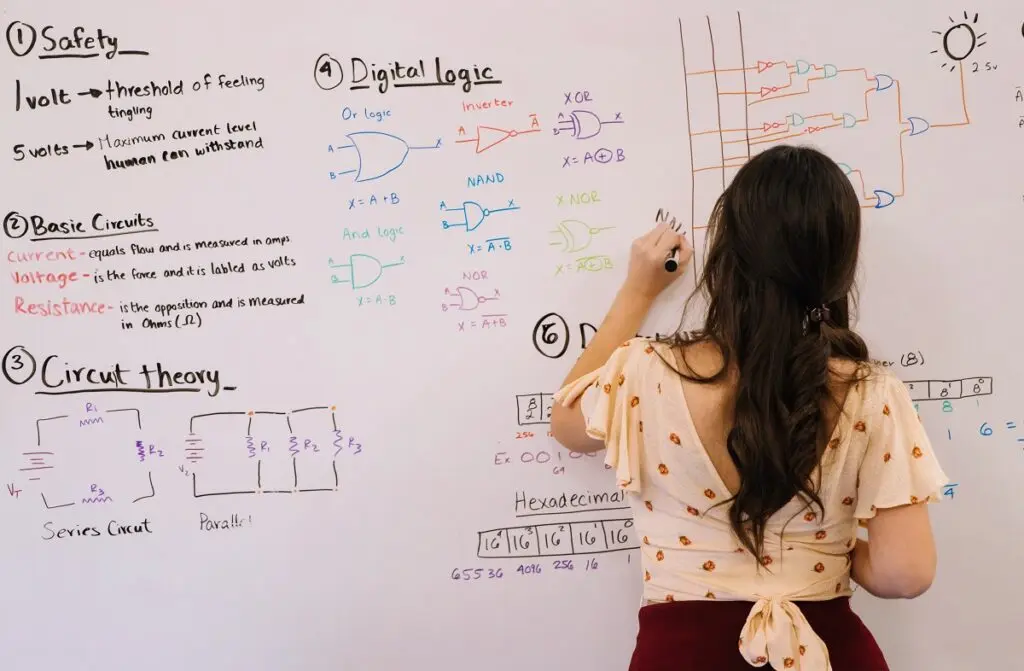 ① Safety
1 volt → threshold of feeling
tingling
5 volts → Maximum current level
human can withstand
② Basic Circuits
Current - equals flow and is measured in amps
Voltage - is the force and it is labled as volts
Resistance - is the opposition and is measured
in Ohms (Ω)
③ Circut theory
R1
R2
R3
VT
Series Circut
V2
R1
R2
R3
Parallel
④ Digital logic
Or logic
A
B
X
X = A + B
And logic
A
B
X
X = A·B
Inverter
A
A̅
NAND
A
B
X
X = A̅·̅B̅
NOR
A
B
X
X = A̅+̅B̅
XOR
A
B
X
X = A ⊕ B
X NOR
X = A̅⊕̅B̅
2.5v
⑥ D
256
Ex. 001
64
Hexadecimal
16⁴ 16³ 16² 16¹ 16⁰
65536 4096 256 16 1
(8)
8¹ 8⁰
8 1
1 6 =
4